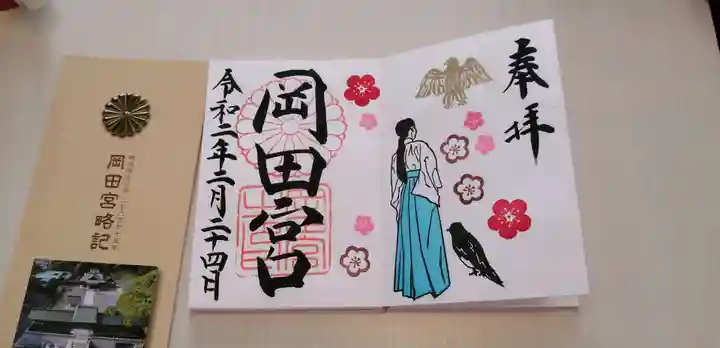 奉拝
岡田宮
令和二年二月二十四日
岡田宮略記